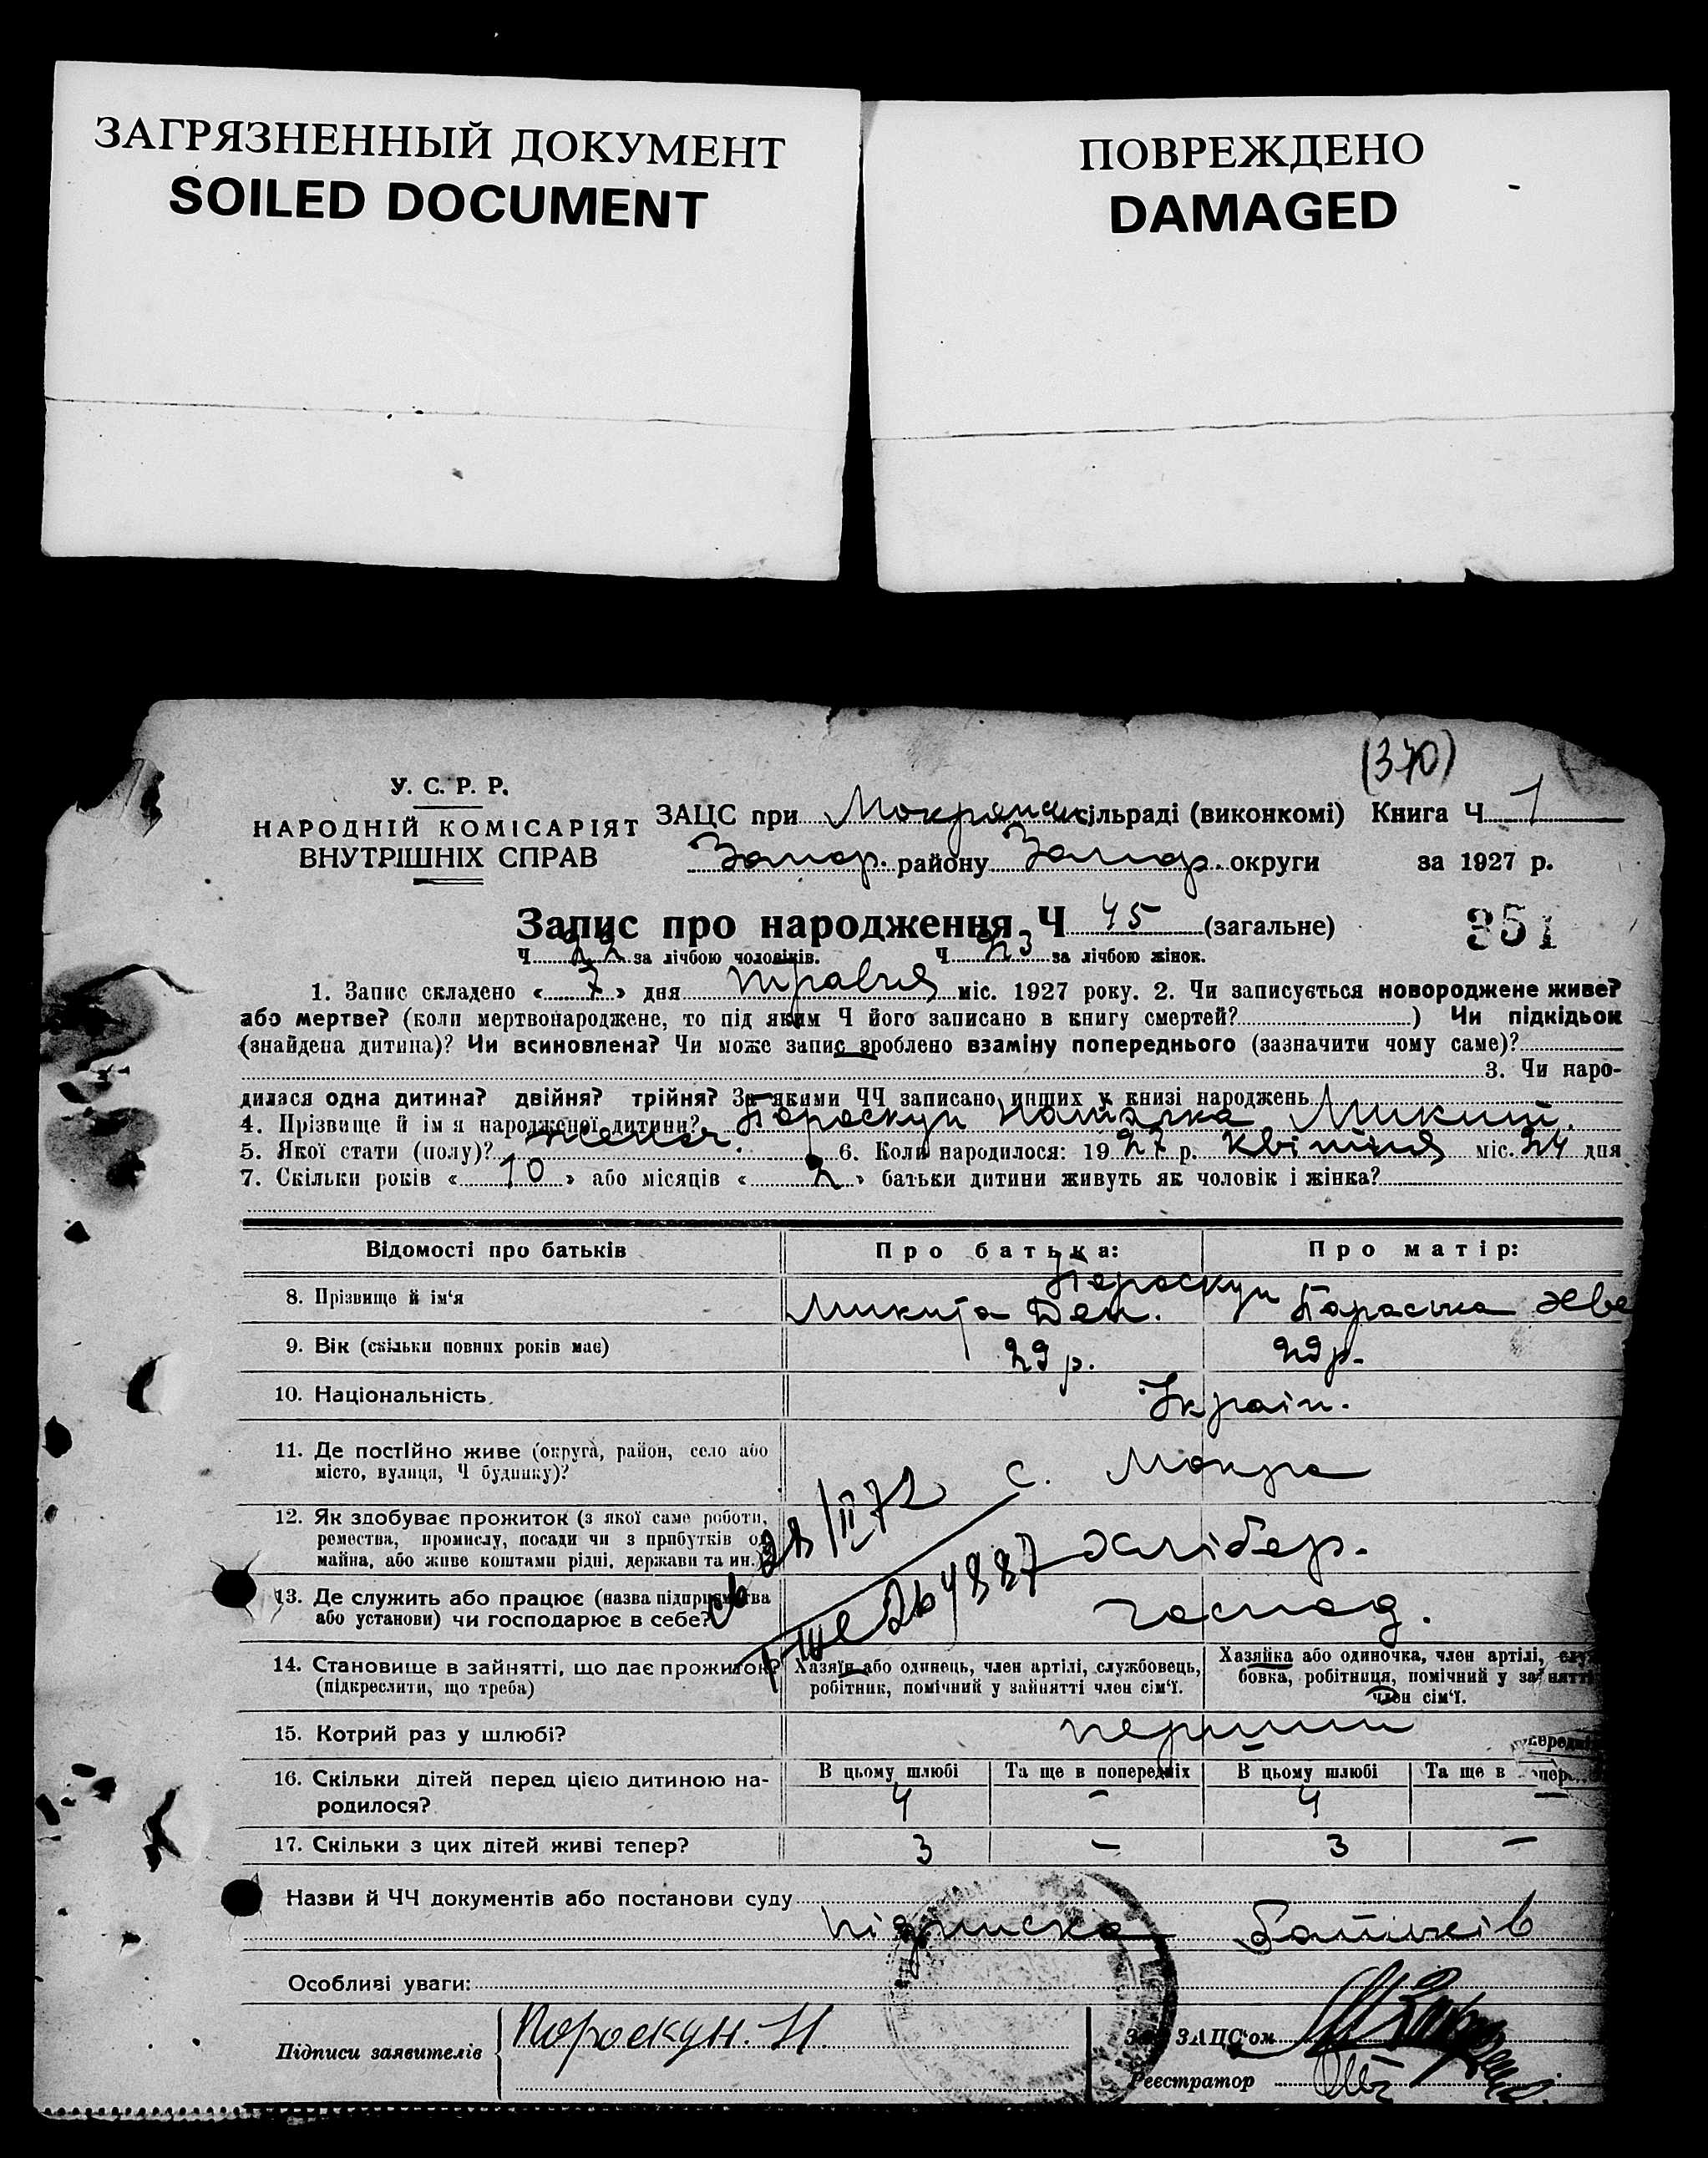 ЗАГРЯЗНЕННЫЙ ДОКУМЕНТ
SOILED DOCUMENT
ПОВРЕЖДЕНО
DAMAGED
(370)
У. С. Р. Р.
НАРОДНІЙ КОМІСАРІЯТ
ВНУТРІШНІХ СПРАВ
ЗАЦС при Мокрянск. сільраді (виконкомі) Книга Ч 1
Запор. району Запор. округи за 1927 р.
Запис про народження Ч 45 (загальне)
351
Ч 22 за лічбою чоловіків. Ч 23 за лічбою жінок.
1. Запис складено « 7 » дня травня міс. 1927 року. 2. Чи записується новороджене живе?
або мертве? (коли мертвонароджене, то під яким Ч його записано в книгу смертей? ) Чи підкідьок
(знайдена дитина)? Чи всиновлена? Чи може запис зроблено взаміну попереднього (зазначити чому саме)?
3. Чи наро-
дилася одна дитина? двійня? трійня? За якими ЧЧ записано инших у книзі народжень
4. Прізвище й ім'я народженої дитини? Пороскун Наталка Микит.
5. Якої стати (полу)? жіноч. 6. Коли народилося: 1927 р. Квітня міс. 24 дня
7. Скільки років « 10 » або місяців « 2 » батьки дитини живуть як чоловік і жінка?
Відомості про батьків
Про батька:
Про матір:
8. Прізвище й ім'я
Пороскун
Микита Дем. Параска
9. Вік (скільки повних років має)
29 р. 29 р.
10. Національність.
Україн.
11. Де постійно живе (округа, район, село або
місто, вулиця, Ч будинку)?
с. Мокра
12. Як здобуває прожиток (з якої саме роботи,
ремества, промислу, посади чи з прибутків од
майна, або живе коштами рідні, держави та ин.)?
28/II 72
Хлібер.
13. Де служить або працює (назва підприємства
або установи) чи господарює в себе?
господ.
14. Становище в зайнятті, що дає прожиток?
(підкреслити, що треба)
Хазяїн або одинець, член артілі, службовець,
робітник, помічний у зайнятті член сім'ї.
Хазяйка або одиночка, член артілі, служ
бовка, робітниця, помічний у зайнятті
член сім'ї.
15. Котрий раз у шлюбі?
перший
16. Скільки дітей перед цією дитиною на-
родилося?
В цьому шлюбі Та ще в попередніх В цьому шлюбі Та ще в попер
4 - 4 -
17. Скільки з цих дітей живі тепер?
3 - 3 -
Назви й ЧЧ документів або постанови суду
підписка батьків
Особливі уваги:
Підписи заявителів
Пороскун. Н.
Зав ЗАЦС'ом
Реєстратор